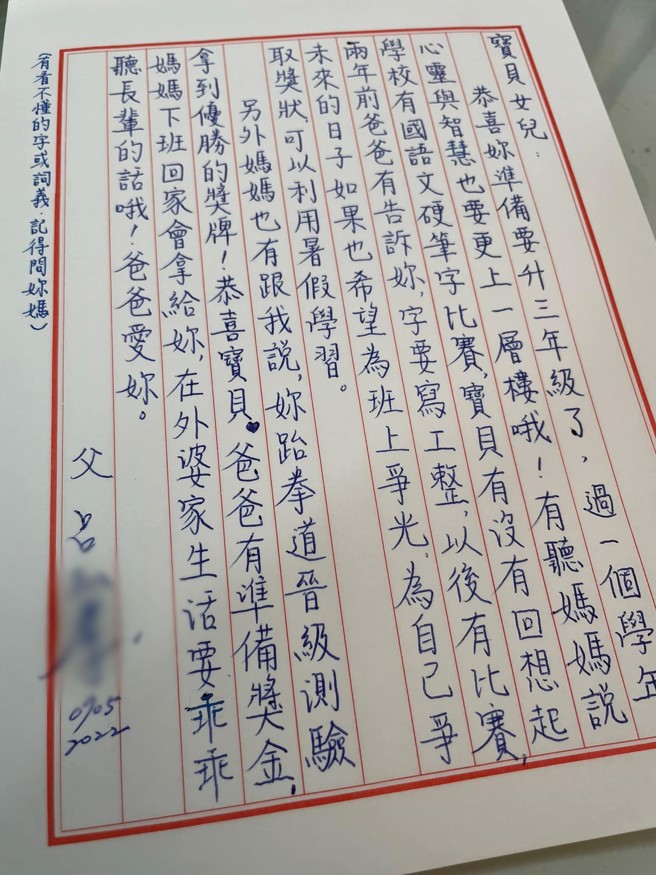 寶貝女兒：
恭喜妳準備要升三年級了，過一個學年
心靈與智慧也要更上一層樓哦！有聽媽媽說
學校有國語文硬筆字比賽，寶貝有沒有回想起
兩年前爸爸有告訴妳，字要寫工整，以後有比賽，
未來的日子如果也希望為班上爭光，為自己爭
取獎狀，可以利用暑假學習。
另外媽媽也有跟我說，妳跆拳道晉級測驗
拿到優勝的獎牌！恭喜寶貝♥爸爸有準備獎金，
媽媽下班回家會拿給妳，在外婆家生活要乖乖
聽長輩的話哦！爸爸愛妳。
父 呂
0705
2022
（有看不懂的字或詞義，記得問妳媽）